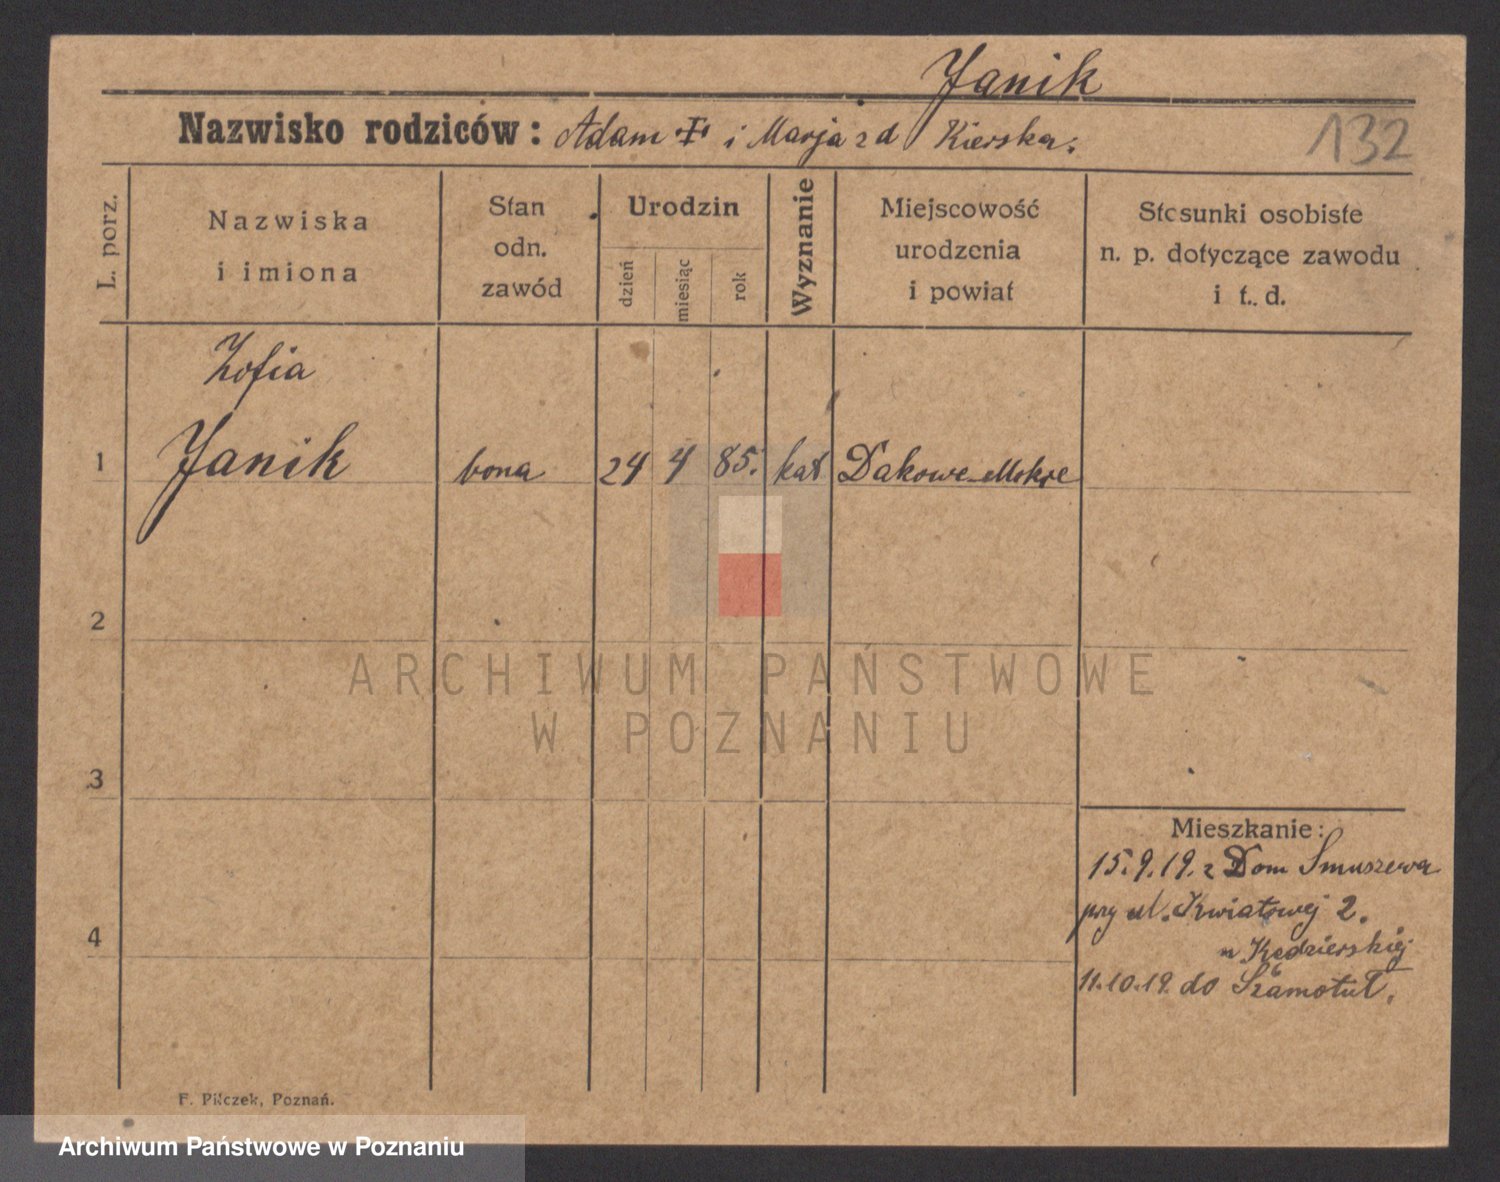 Janik
132
Nazwisko rodziców: Adam i Marja z d Kierska.
L. porz.
Nazwiska
i imiona
Stan
odn.
zawód
Urodzin
dzień
miesiąc
rok
Wyznanie
Miejscowość
urodzenia
i powiat
Stosunki osobiste
n. p. dotyczące zawodu
i t. d.
Zofia
1 Janik bona 24 4 85. kat Dakowe-Mokre
2
3
4
Mieszkanie:
15.9.19. z Dom Smuszewa
przy ul. Kwiatowej 2.
u Kędzierskiej
11.10.19. do Szamotuł.
F. Pilczek, Poznań.
ARCHIWUM PAŃSTWOWE
W POZNANIU
Archiwum Państwowe w Poznaniu